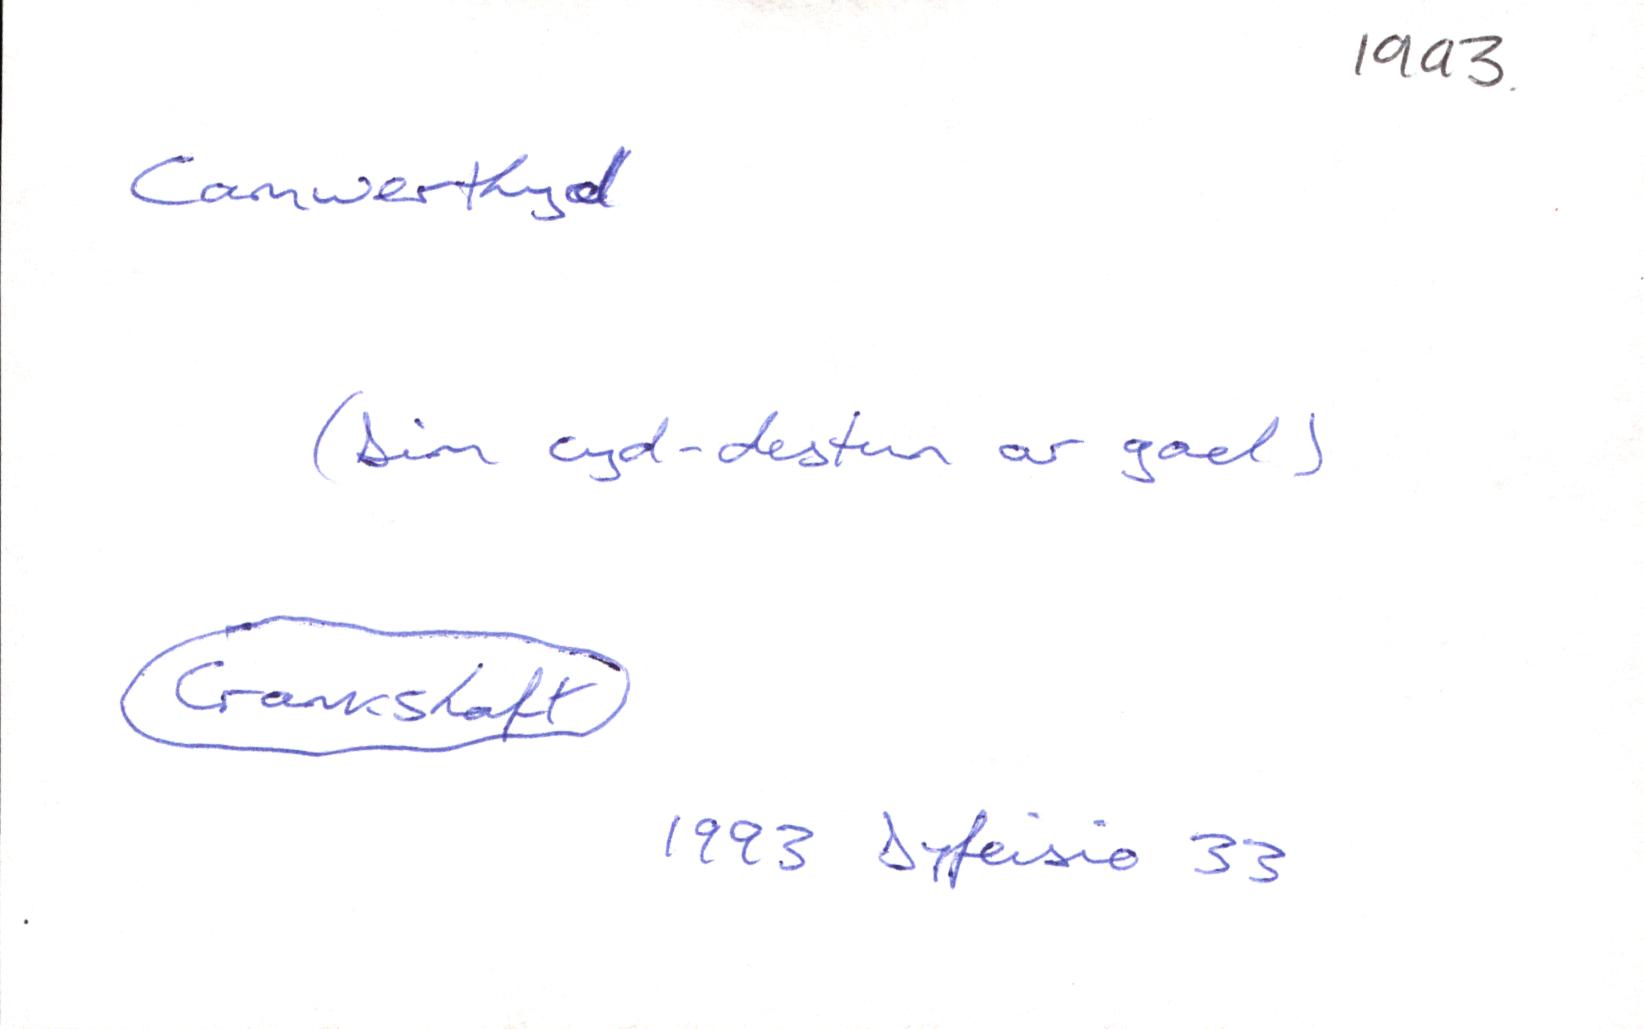 1993.
Camwerthyd
(Dim cyd-destun ar gael)
Crankshaft
1993 Dyfeisio 33